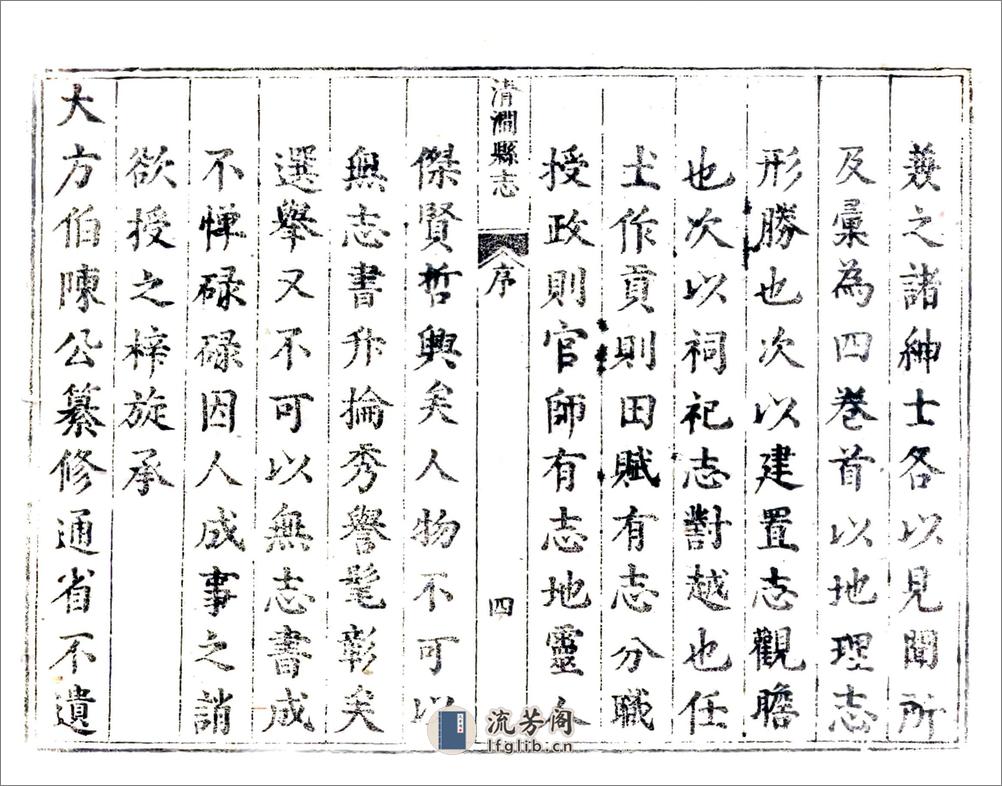 兼之諸紳士各以見聞所
及彙為四卷首以地理志
形勝也次以建置志觀瞻
也次以祠祀志對越也任
土作貢則田賦有志分職
授政則官師有志地靈人
清澗縣志 序 四
傑賢哲興矣人物不可以
無志書升掄秀譽髦彰矣
選舉又不可以無志書成
不憚碌碌因人成事之誚
欲授之梓旋承
大方伯陳公纂修通省不遺
流芳阁
lfglib.cn